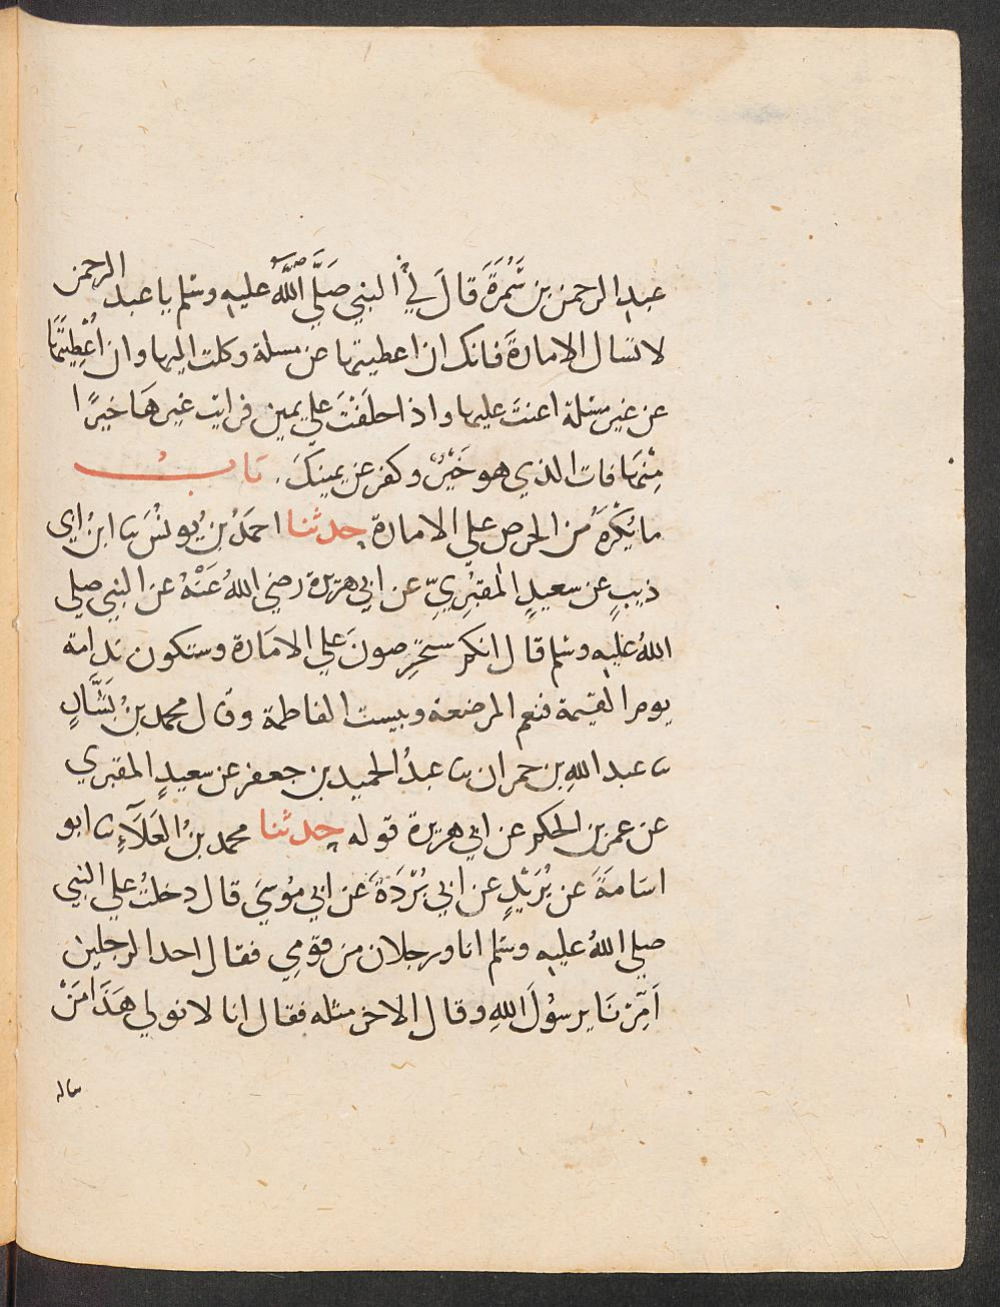 عبد الرحمن بن سَمُرَةَ قَالَ لي النبي صَلَّي اللَّهُ عليه وسلم يا عبد الرحمن
لا تسال الامارةَ فانك ان اعطيتها عن مسلة وكلت اليها وان اُعْطِيتَهَا
عن غير مسئلة اعنتَ عليها واذا حلَفْتَ علي يمين فرايت غيرهَا خيرًا
مِنْهَا فات الذي هو خَيْرٌ وكفر عن يمينكَ. بَابُ
ما يُكْرَهُ من الحرص علي الامارة حدثنا احمَدُ بنُ يُونُسَ نا ابنُ ابي
ذيبٍ عن سعيدٍ المقبُرِيِّ عن ابي هريرة رضي اللهُ عَنْهُ عن النبي صلي
اللهُ عليه وسلم قال انكم ستحرِصونَ علي الامَارة وستكون ندامة
يوم القيمة فنعم المرضعة وبيست الفاطمة وقال محمد بنُ بَشَّارٍ
نا عبد اللهِ بن حمران نا عبدُ الحميد بن جعفر عن سعيدٍ المقبري
عن عمر بن الحكم عن ابي هريرة قوله حدثنا محمد بنُ العَلَآءِ نا ابو
اسَامةَ عن بُرَيْدٍ عن ابي بُرْدَةَ عن ابي مُوسَي قال دخلتُ علي النبي
صلي اللهُ عليه وسلم انا ورجلان من قومي فقال احد الرجلين
اَمِّرْنَا يا رسُولَ اللهِ وقال الاخر مثله فقال انا لا نولي هَذَا مَنْ
ساله